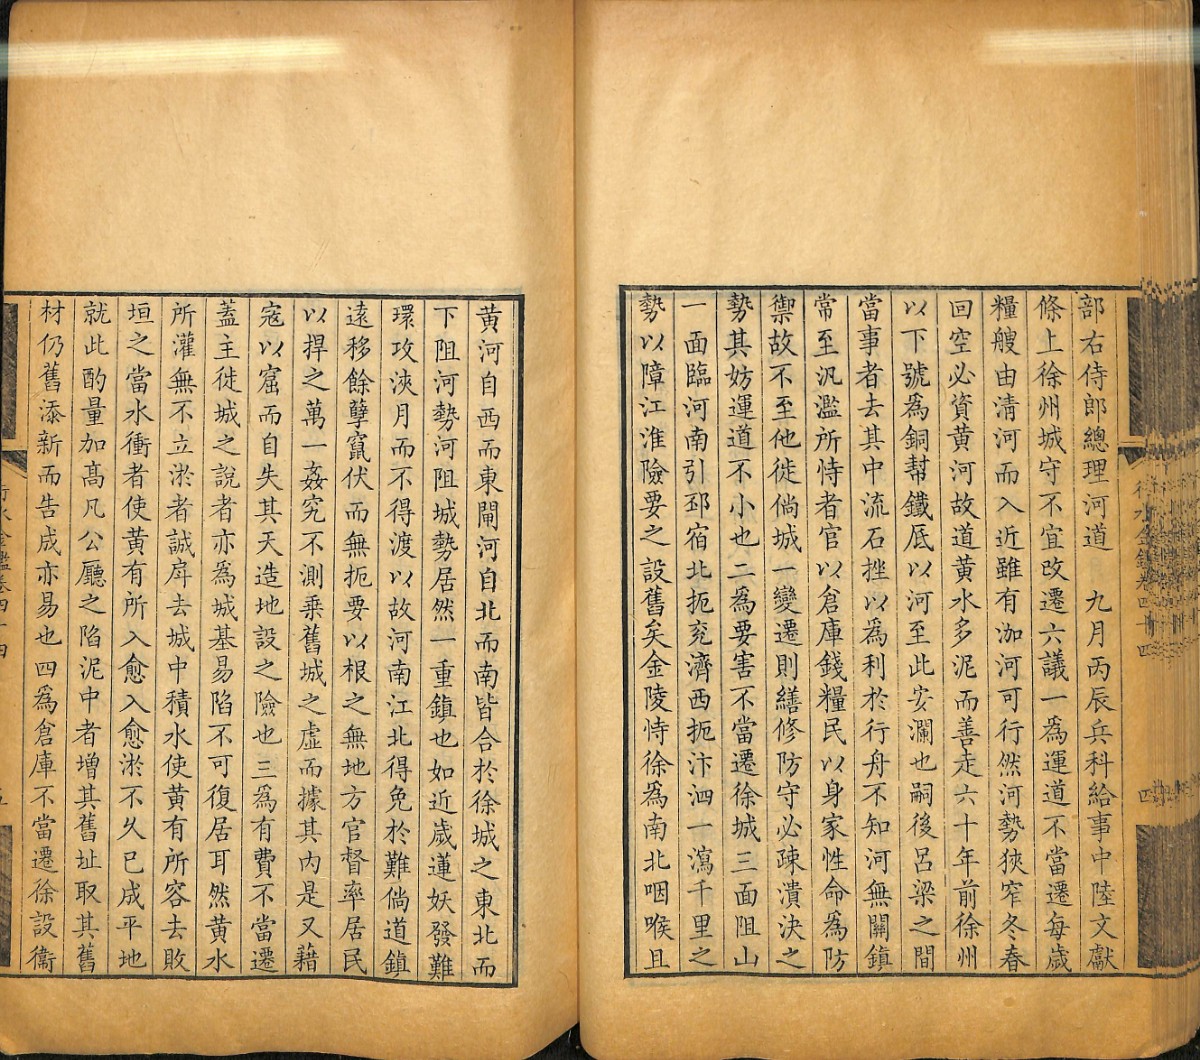 部右侍郎總理河道　九月丙辰兵科給事中陸文獻
條上徐州城守不宜改遷六議一為運道不當遷每歲
糧艘由清河而入近雖有泇河可行然河勢狹窄冬春
回空必資黃河故道黃水多泥而善走六十年前徐州
以下號為銅幫鐵底以河至此安瀾也嗣後呂梁之間
當事者去其中流石挫以為利於行舟不知河無關鎮
常至汎濫所恃者官以倉庫錢糧民以身家性命為防
禦故不至他徙倘城一變遷則繕修防守必疎潰決之
勢其妨運道不小也二為要害不當遷徐城三面阻山
一面臨河南引邳宿北扼兖濟西扼汴泗一瀉千里之
勢以障江淮險要之設舊矣金陵恃徐為南北咽喉且
行水金鑑卷四十四
四
黃河自西而東閘河自北而南皆合於徐城之東北而
下阻河勢河阻城勢居然一重鎮也如近歲蓮妖發難
環攻浹月而不得渡以故河南江北得免於難倘道鎮
遠移餘孽竄伏而無扼要以根之無地方官督率居民
以捍之萬一姦宄不測乘舊城之虛而據其內是又藉
寇以窟而自失其天造地設之險也三為有費不當遷
蓋主徙城之說者亦為城基易陷不可復居耳然黃水
所灌無不立淤者誠戽去城中積水使黃有所容去敗
垣之當水衝者使黃有所入愈入愈淤不久已成平地
就此酌量加高凡公廳之陷泥中者增其舊址取其舊
材仍舊添新而告成亦易也四為倉庫不當遷徐設衞
行水金鑑卷四十四
五